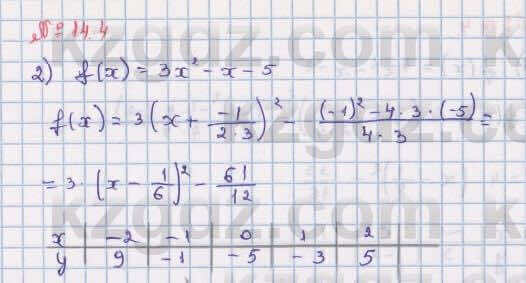 № 14.4
2) f(x) = 3x² - x - 5
f(x) = 3(x + \frac{-1}{2·3})² - \frac{(-1)² - 4·3·(-5)}{4·3} =
= 3·(x - \frac{1}{6})² - \frac{61}{12}
x | -2 | -1 | 0 | 1 | 2
y | 9 | -1 | -5 | -3 | 5
kzgdz.com